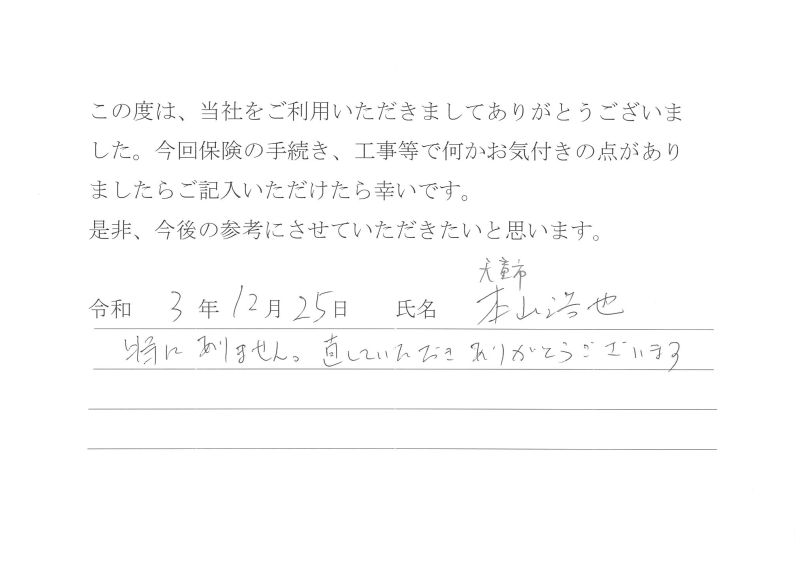 この度は、当社をご利用いただきましてありがとうございま
した。今回保険の手続き、工事等で何かお気付きの点があり
ましたらご記入いただけたら幸いです。
是非、今後の参考にさせていただきたいと思います。
天童市
令和 3 年 12 月 25 日 氏名 本山浩也
特にありません。直していただきありがとうございます